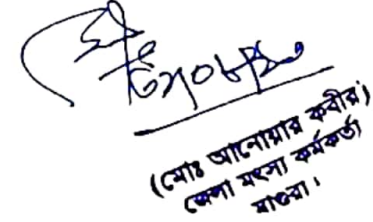 (মোঃ আনোয়ার কবীর)
জেলা মৎস্য কর্মকর্তা
মাগুরা।